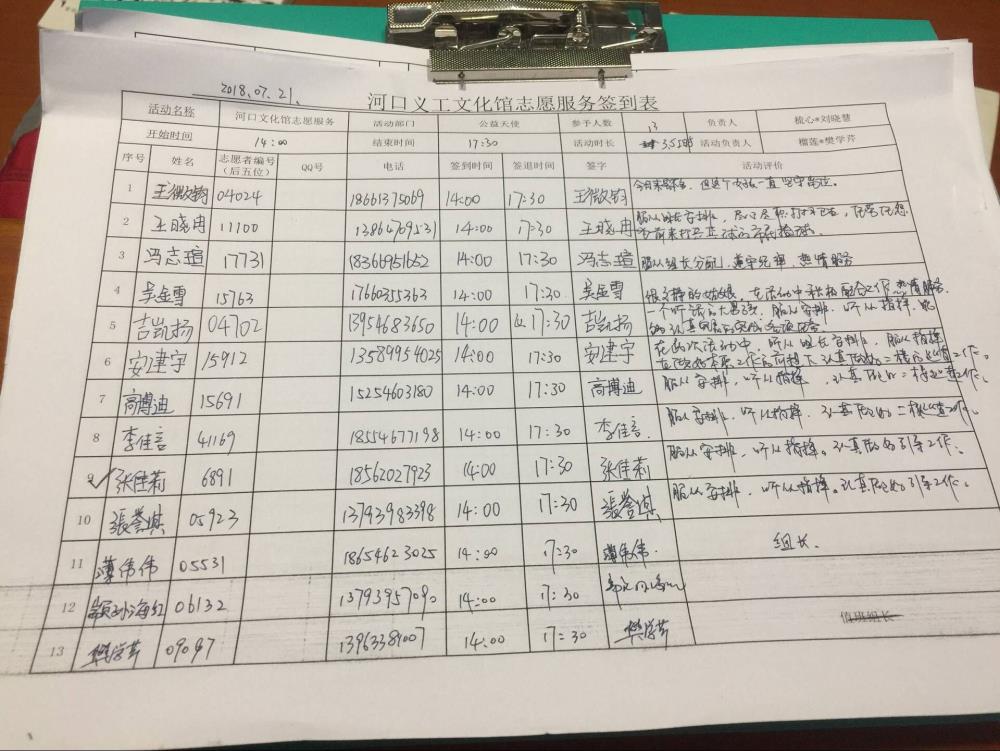 2018.07.21.
河口义工文化馆志愿服务签到表
活动名称 河口文化馆志愿服务 活动部门 公益天使 参予人数 13 负责人 梳心*刘晓慧
开始时间 14:00 结束时间 17:30 活动时长 3.5 活动负责人 榴莲*樊学芹
序号 姓名 志愿者编号（后五位） QQ号 电话 签到时间 签退时间 签字 活动评价
1 王微钧 04024 18661375069 14:00 17:30 王微钧
2 王晓冉 11100 13864769531 14:00 17:30 王晓冉 服从组长安排，
3 冯志瑄 17731 18366951652 14:00 17:30 冯志瑄 服从组长分配，遵守纪律，热情服务
4 吴金雪 15763 17660355363 14:00 17:30 吴金雪 很文静的姑娘，在活动中积极配合工作，热情服务
5 吉凯扬 04702 13954683650 14:00 17:30 吉凯扬 服从安排，听从指挥，
6 安建宇 15912 13589954025 14:00 17:30 安建宇 在此次活动中，听从组长安排，服从指挥
7 高博迪 15691 15254603180 14:00 17:30 高博迪 服从安排，听从指挥，认真
8 李佳言 41169 18554677198 14:00 17:30 李佳言. 服从安排，听从指挥，认真
9 张佳莉 6891 18562027923 14:00 17:30 张佳莉 服从安排，听从指挥。认真做好引导工作.
10 張誉淇 05923 13793983398 14:00 17:30 張誉淇 服从安排，听从指挥。认真做好引导工作.
11 薄伟伟 05531 18654623025 14:00 17:30 薄伟伟. 组长.
12 颛孙海红 06132 14:00 17:30
13 樊学芹 09097 13963389007 14:00 17:30 樊学芹
值班组长